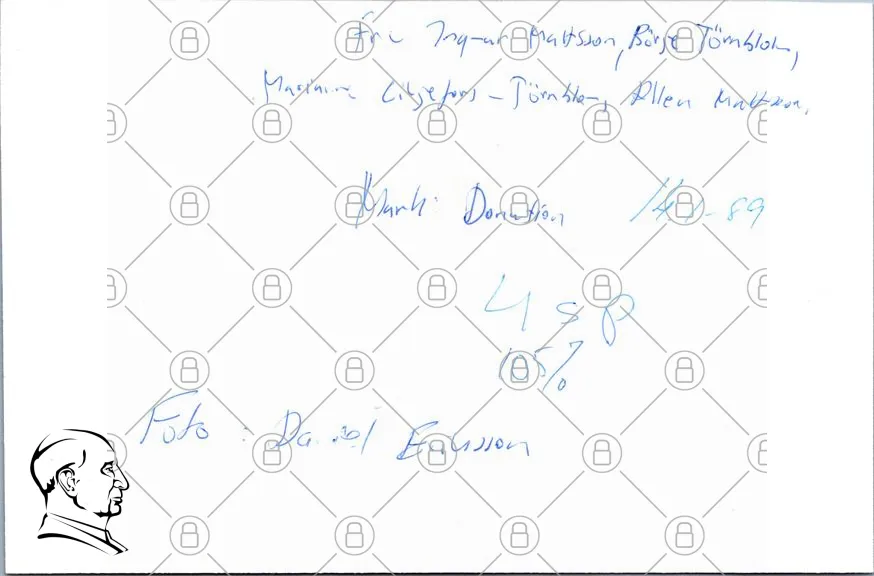 Ingvar Mattsson, Börje Törnblom,
Marianne Liljefors-Törnblom, Allen Mattsson,
Mark: Donation 14/1-89
4 sp
105%
Foto: Daniel Ericsson